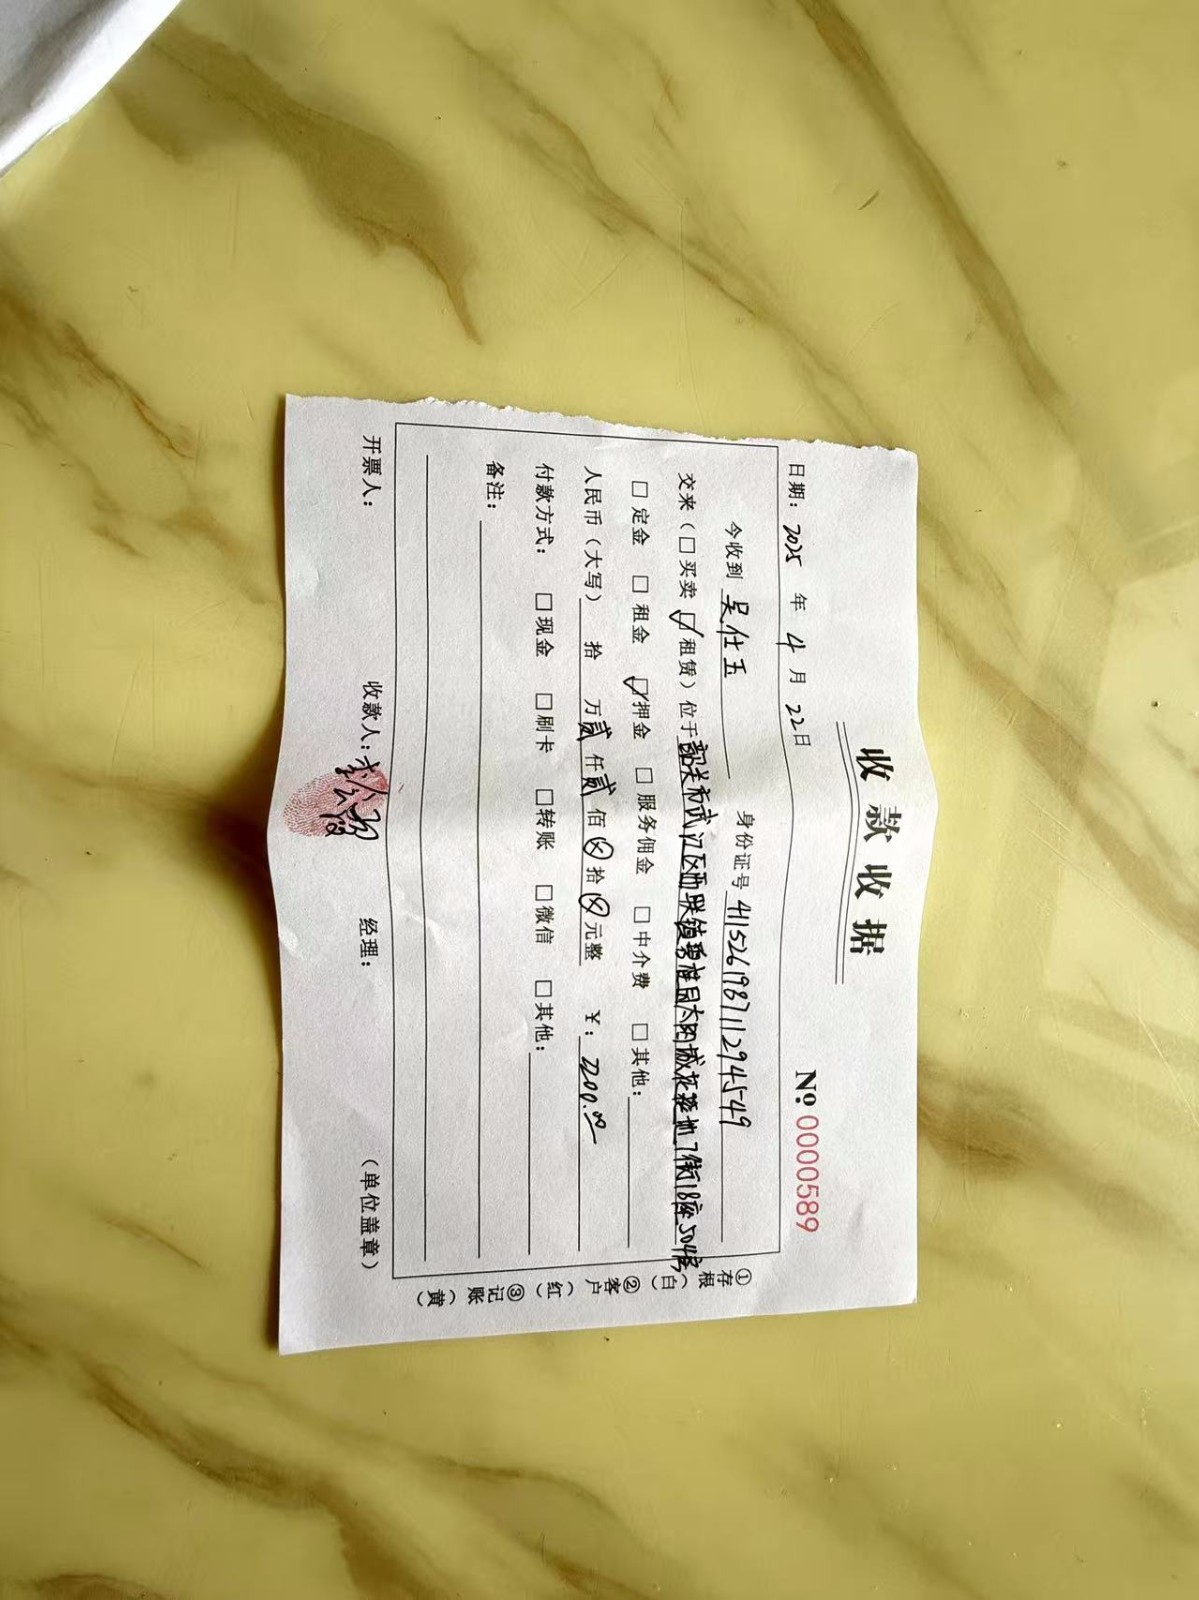 收款收据
日期：2025 年 4 月 22日 №.0000589
今收到 吴仕玉 身份证号 411526198711294549
交来（□买卖 ☑租赁）位于 韶关市武江区西联镇碧桂园太阳城花 7街18座504房
□定金 □租金 ☑押金 □服务佣金 □中介费 □其他：
人民币（大写） 拾 万 贰 仟 贰 佰 ⊗ 拾 ⊗ 元整 ¥：2200.00
付款方式： □现金 □刷卡 □转账 □微信 □其他：
备注：
开票人： 收款人： 经理： （单位盖章）
①存根（白） ②客户（红） ③记账（黄）